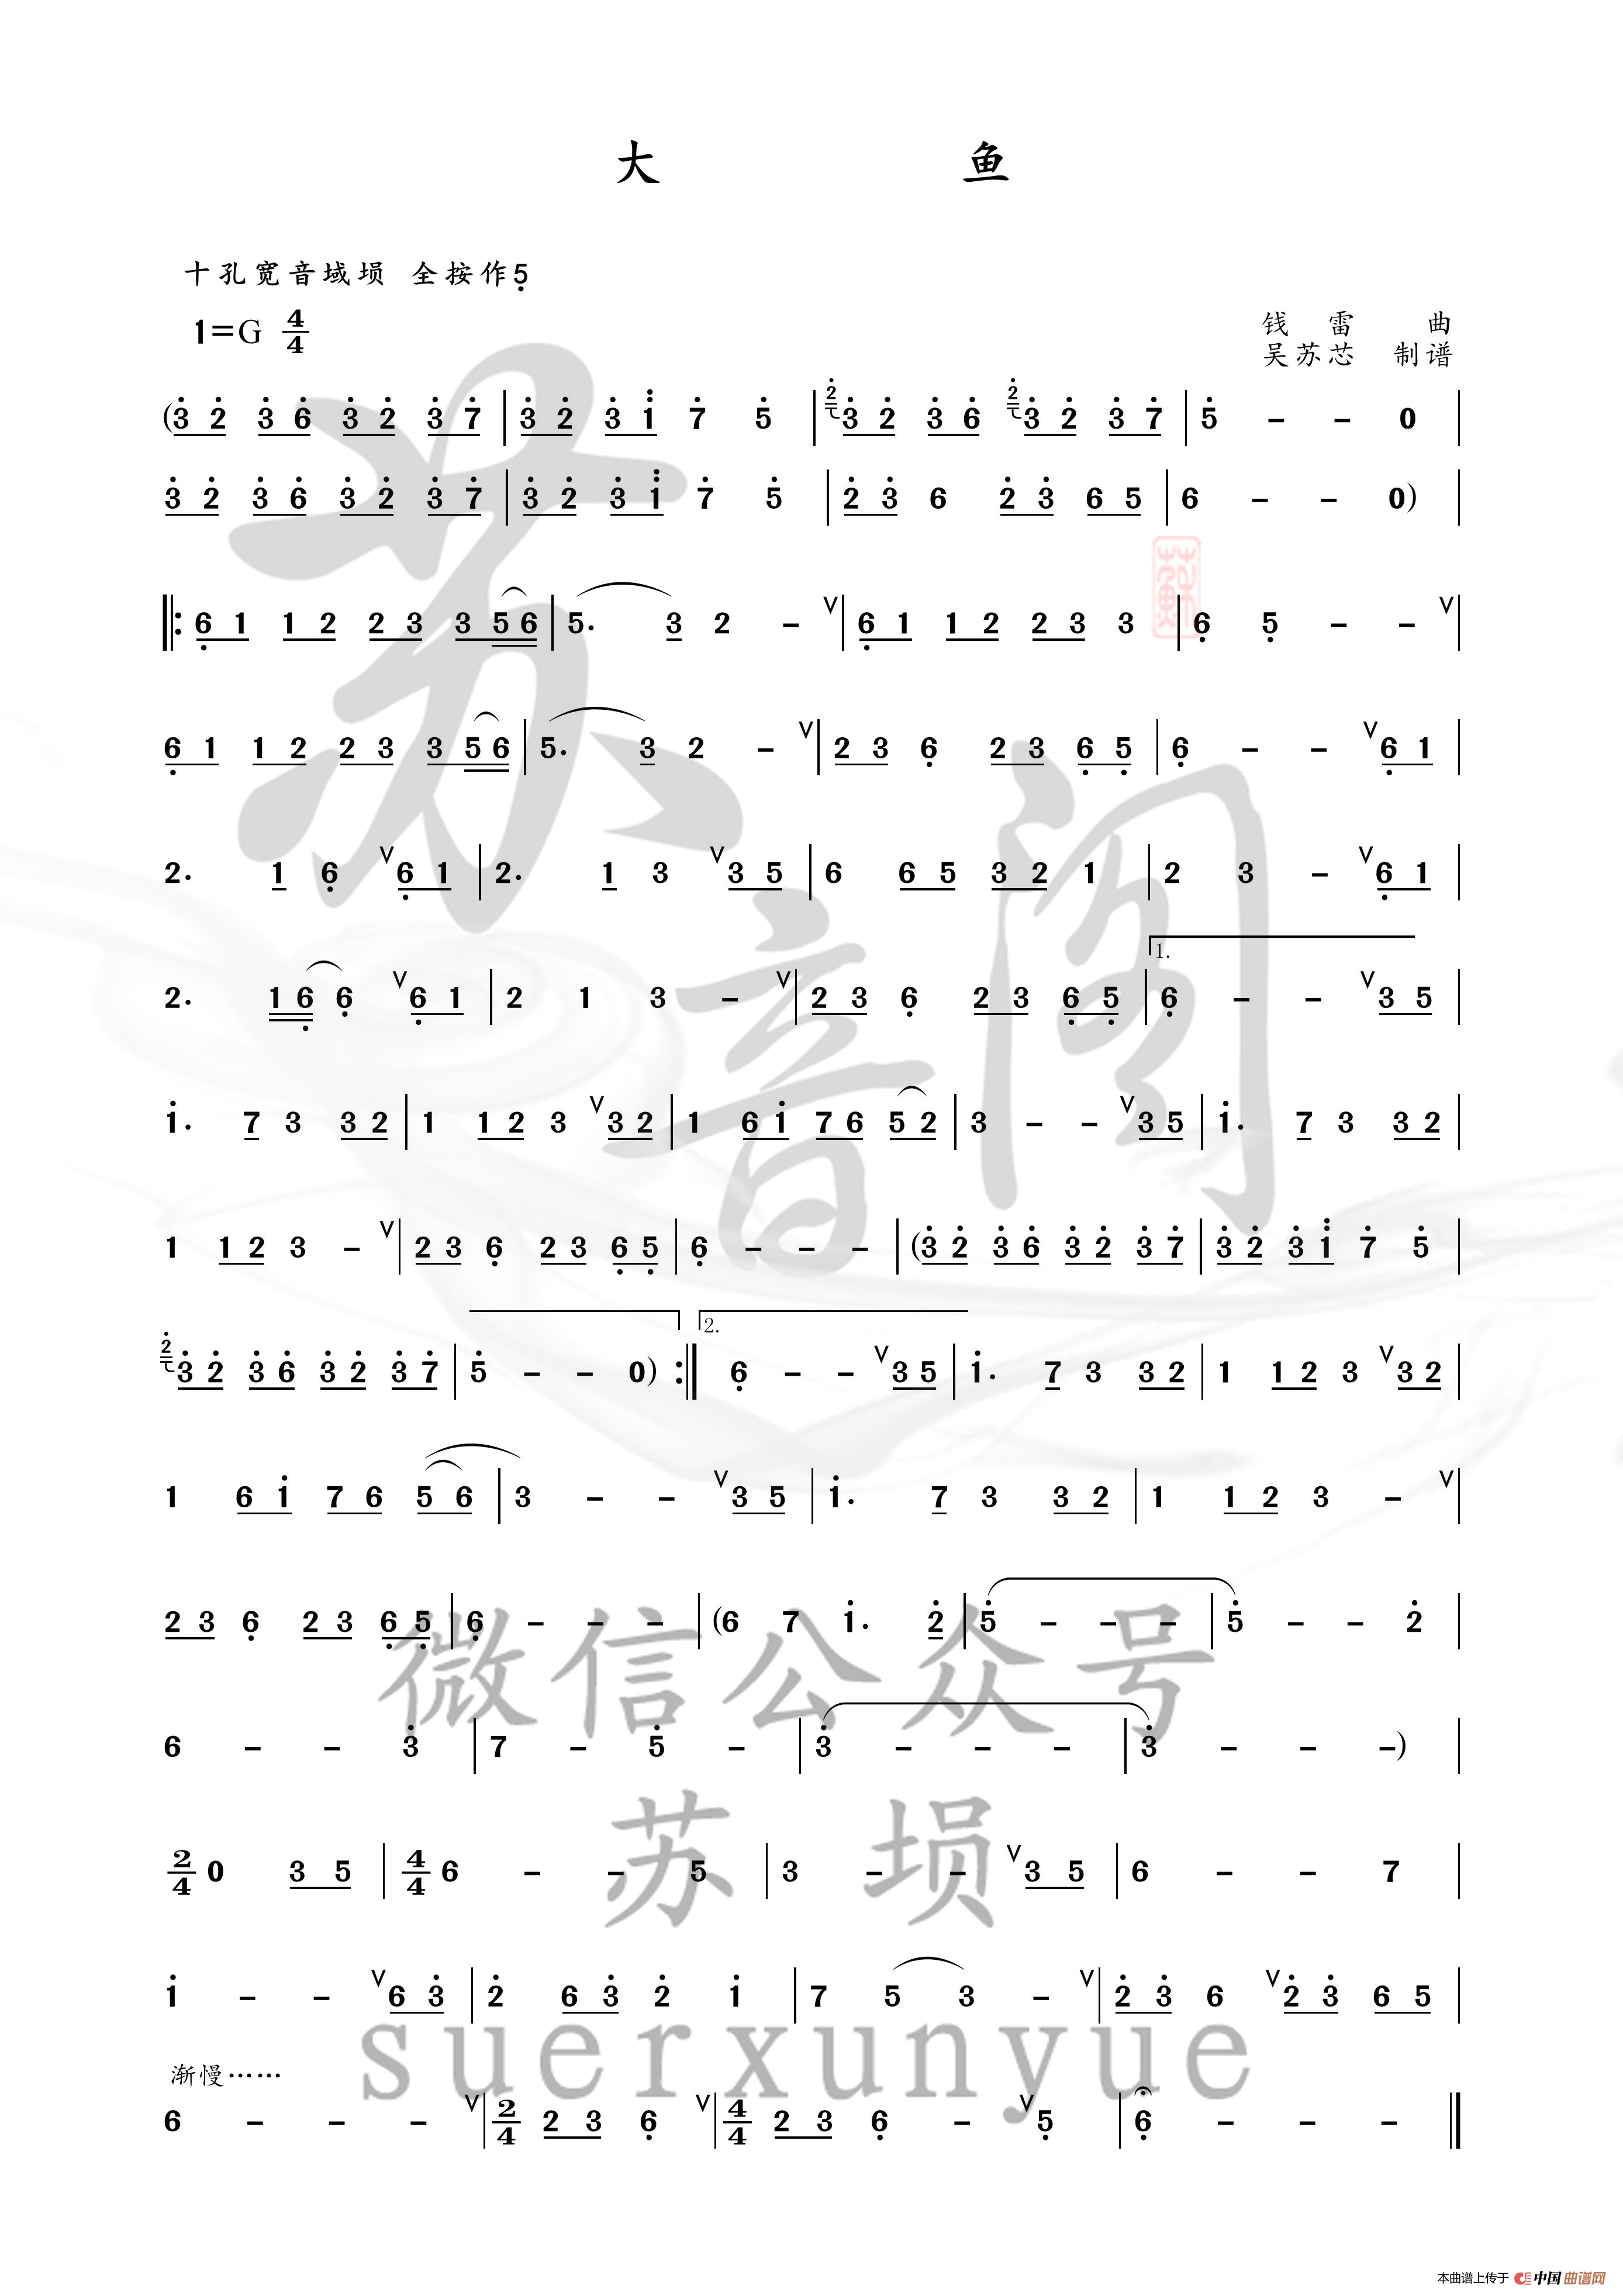 大 鱼
十孔宽音域埙 全按作5̣
1=G 4/4
钱 雷 曲
吴苏芯 制谱
(3̇ 2̇ 3̇ 6̇ 3̇ 2̇ 3̇ 7̇ | 3̇ 2̇ 3̇ 1̈ 7̇ 5̇ | 2̇ 3̇ 2̇ 3̇ 6̇ 2̇ 3̇ 2̇ 3̇ 7̇ | 5̇ - - 0 |
3̇ 2̇ 3̇ 6̇ 3̇ 2̇ 3̇ 7̇ | 3̇ 2̇ 3̇ 1̈ 7̇ 5̇ | 2̇ 3̇ 6 2̇ 3̇ 6 5 | 6 - - 0) |
‖: 6̣ 1 1 2 2 3 3 5 6 | 5. 3 2 - V | 6̣ 1 1 2 2 3 3 | 6̣ 5̣ - - V |
6̣ 1 1 2 2 3 3 5 6 | 5. 3 2 - V | 2 3 6̣ 2 3 6̣ 5̣ | 6̣ - - V 6̣ 1 |
2. 1 6̣ V 6̣ 1 | 2. 1 3 V 3 5 | 6 6 5 3 2 1 | 2 3 - V 6̣ 1 |
1.
2. 1 6̣ 6̣ V 6̣ 1 | 2 1 3 - V | 2 3 6̣ 2 3 6̣ 5̣ | 6̣ - - V 3 5 |
1̇. 7 3 3 2 | 1 1 2 3 V 3 2 | 1 6 1̇ 7 6 5 2 | 3 - - V 3 5 | 1̇. 7 3 3 2 |
1 1 2 3 - V | 2 3 6̣ 2 3 6̣ 5̣ | 6̣ - - - | (3̇ 2̇ 3̇ 6̇ 3̇ 2̇ 3̇ 7̇ | 3̇ 2̇ 3̇ 1̈ 7̇ 5̇ |
2.
2̇ 3̇ 2̇ 3̇ 6̇ 3̇ 2̇ 3̇ 7̇ | 5̇ - - 0) :‖ 6̣ - - V 3 5 | 1̇. 7 3 3 2 | 1 1 2 3 V 3 2 |
1 6 1̇ 7 6 5 6 | 3 - - V 3 5 | 1̇. 7 3 3 2 | 1 1 2 3 - V |
2 3 6̣ 2 3 6̣ 5̣ | 6̣ - - - | (6 7 1̇. 2̇ | 5̇ - - - | 5̇ - - 2̇ |
6 - - 3̇ | 7 - 5̇ - | 3̇ - - - | 3̇ - - -) |
2/4 0 3 5 | 4/4 6 - - 5 | 3 - - V 3 5 | 6 - - 7 |
1̇ - - V 6 3̇ | 2̇ 6 3̇ 2̇ 1̇ | 7 5 3 - V | 2̇ 3̇ 6 V 2̇ 3̇ 6 5 |
渐慢……
6 - - - V | 2/4 2 3 6̣ V | 4/4 2 3 6̣ - V 5̣ | 6̣ - - - ‖
苏音阁
微信公众号
苏 埙
suerxunyue
本曲谱上传于 中国曲谱网